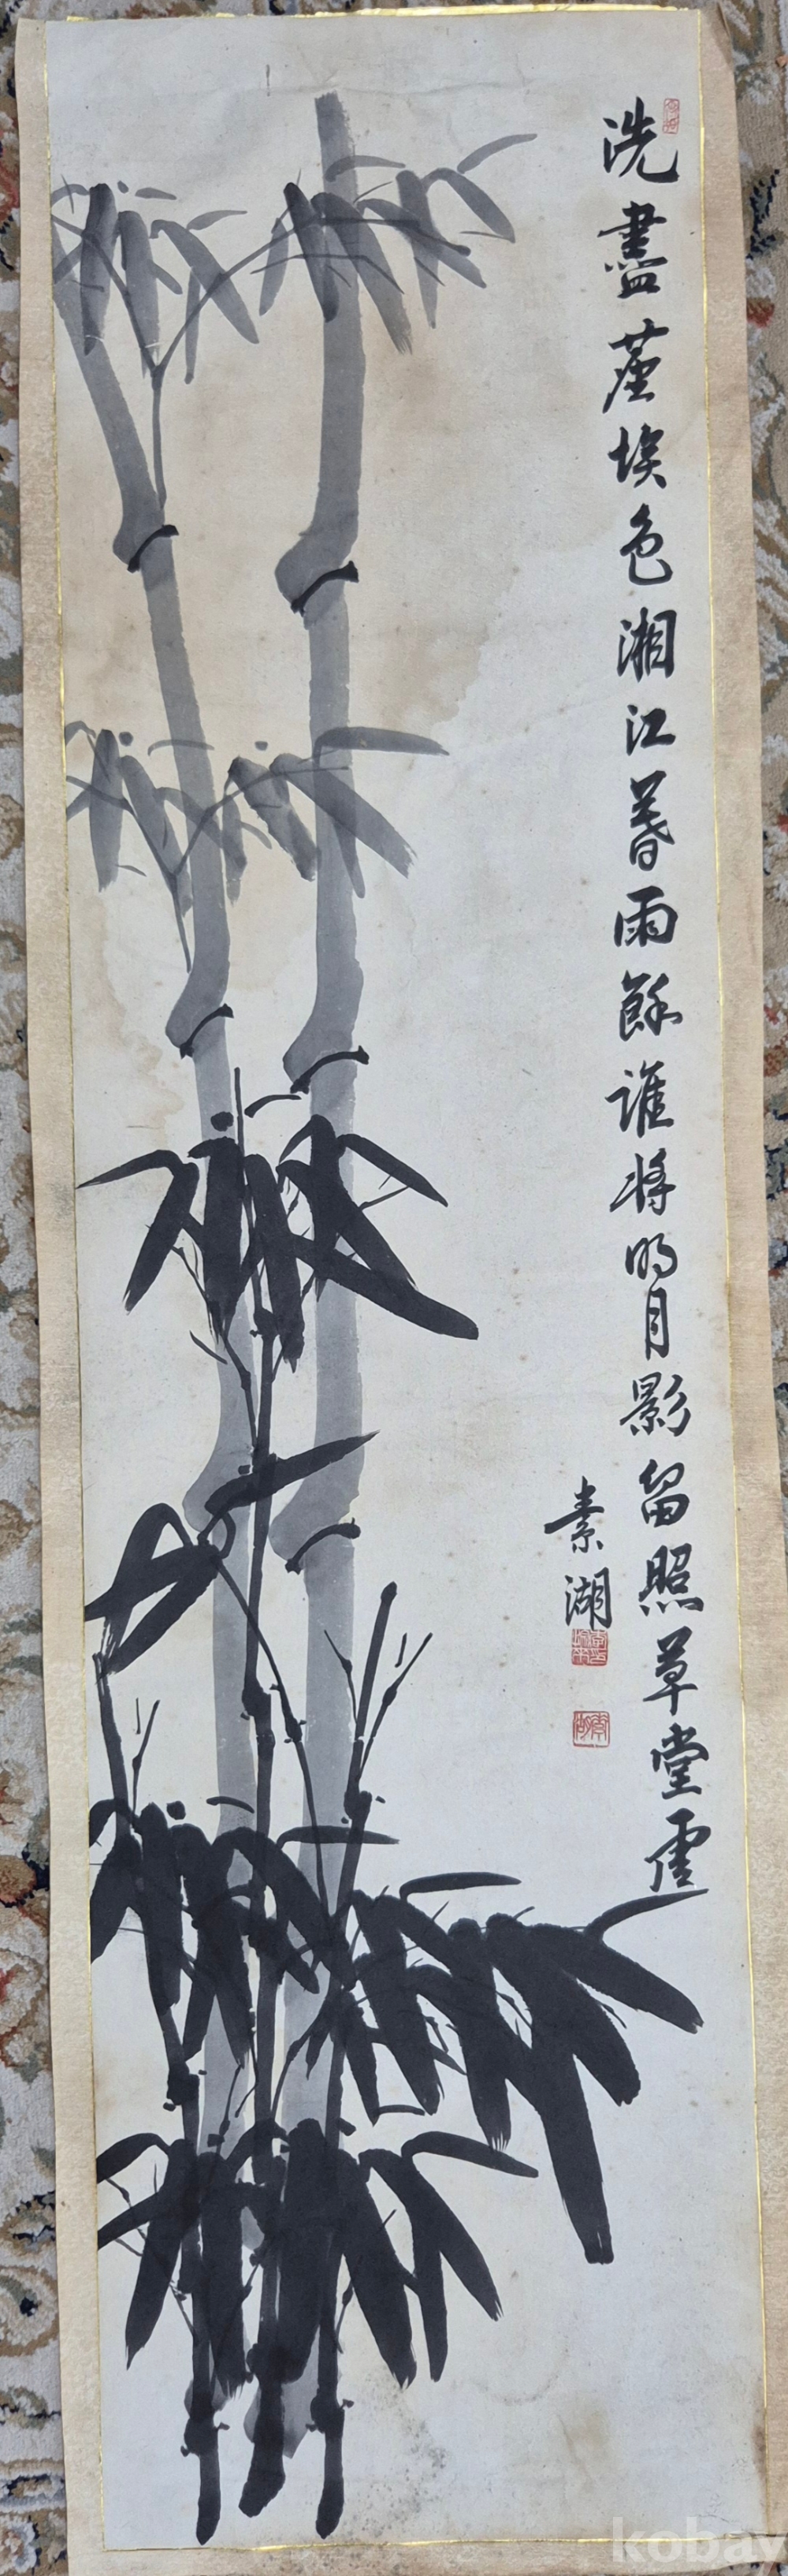 洗盡塵埃色湘江暮雨餘誰將明月影留照草堂虛
素湖
kobay